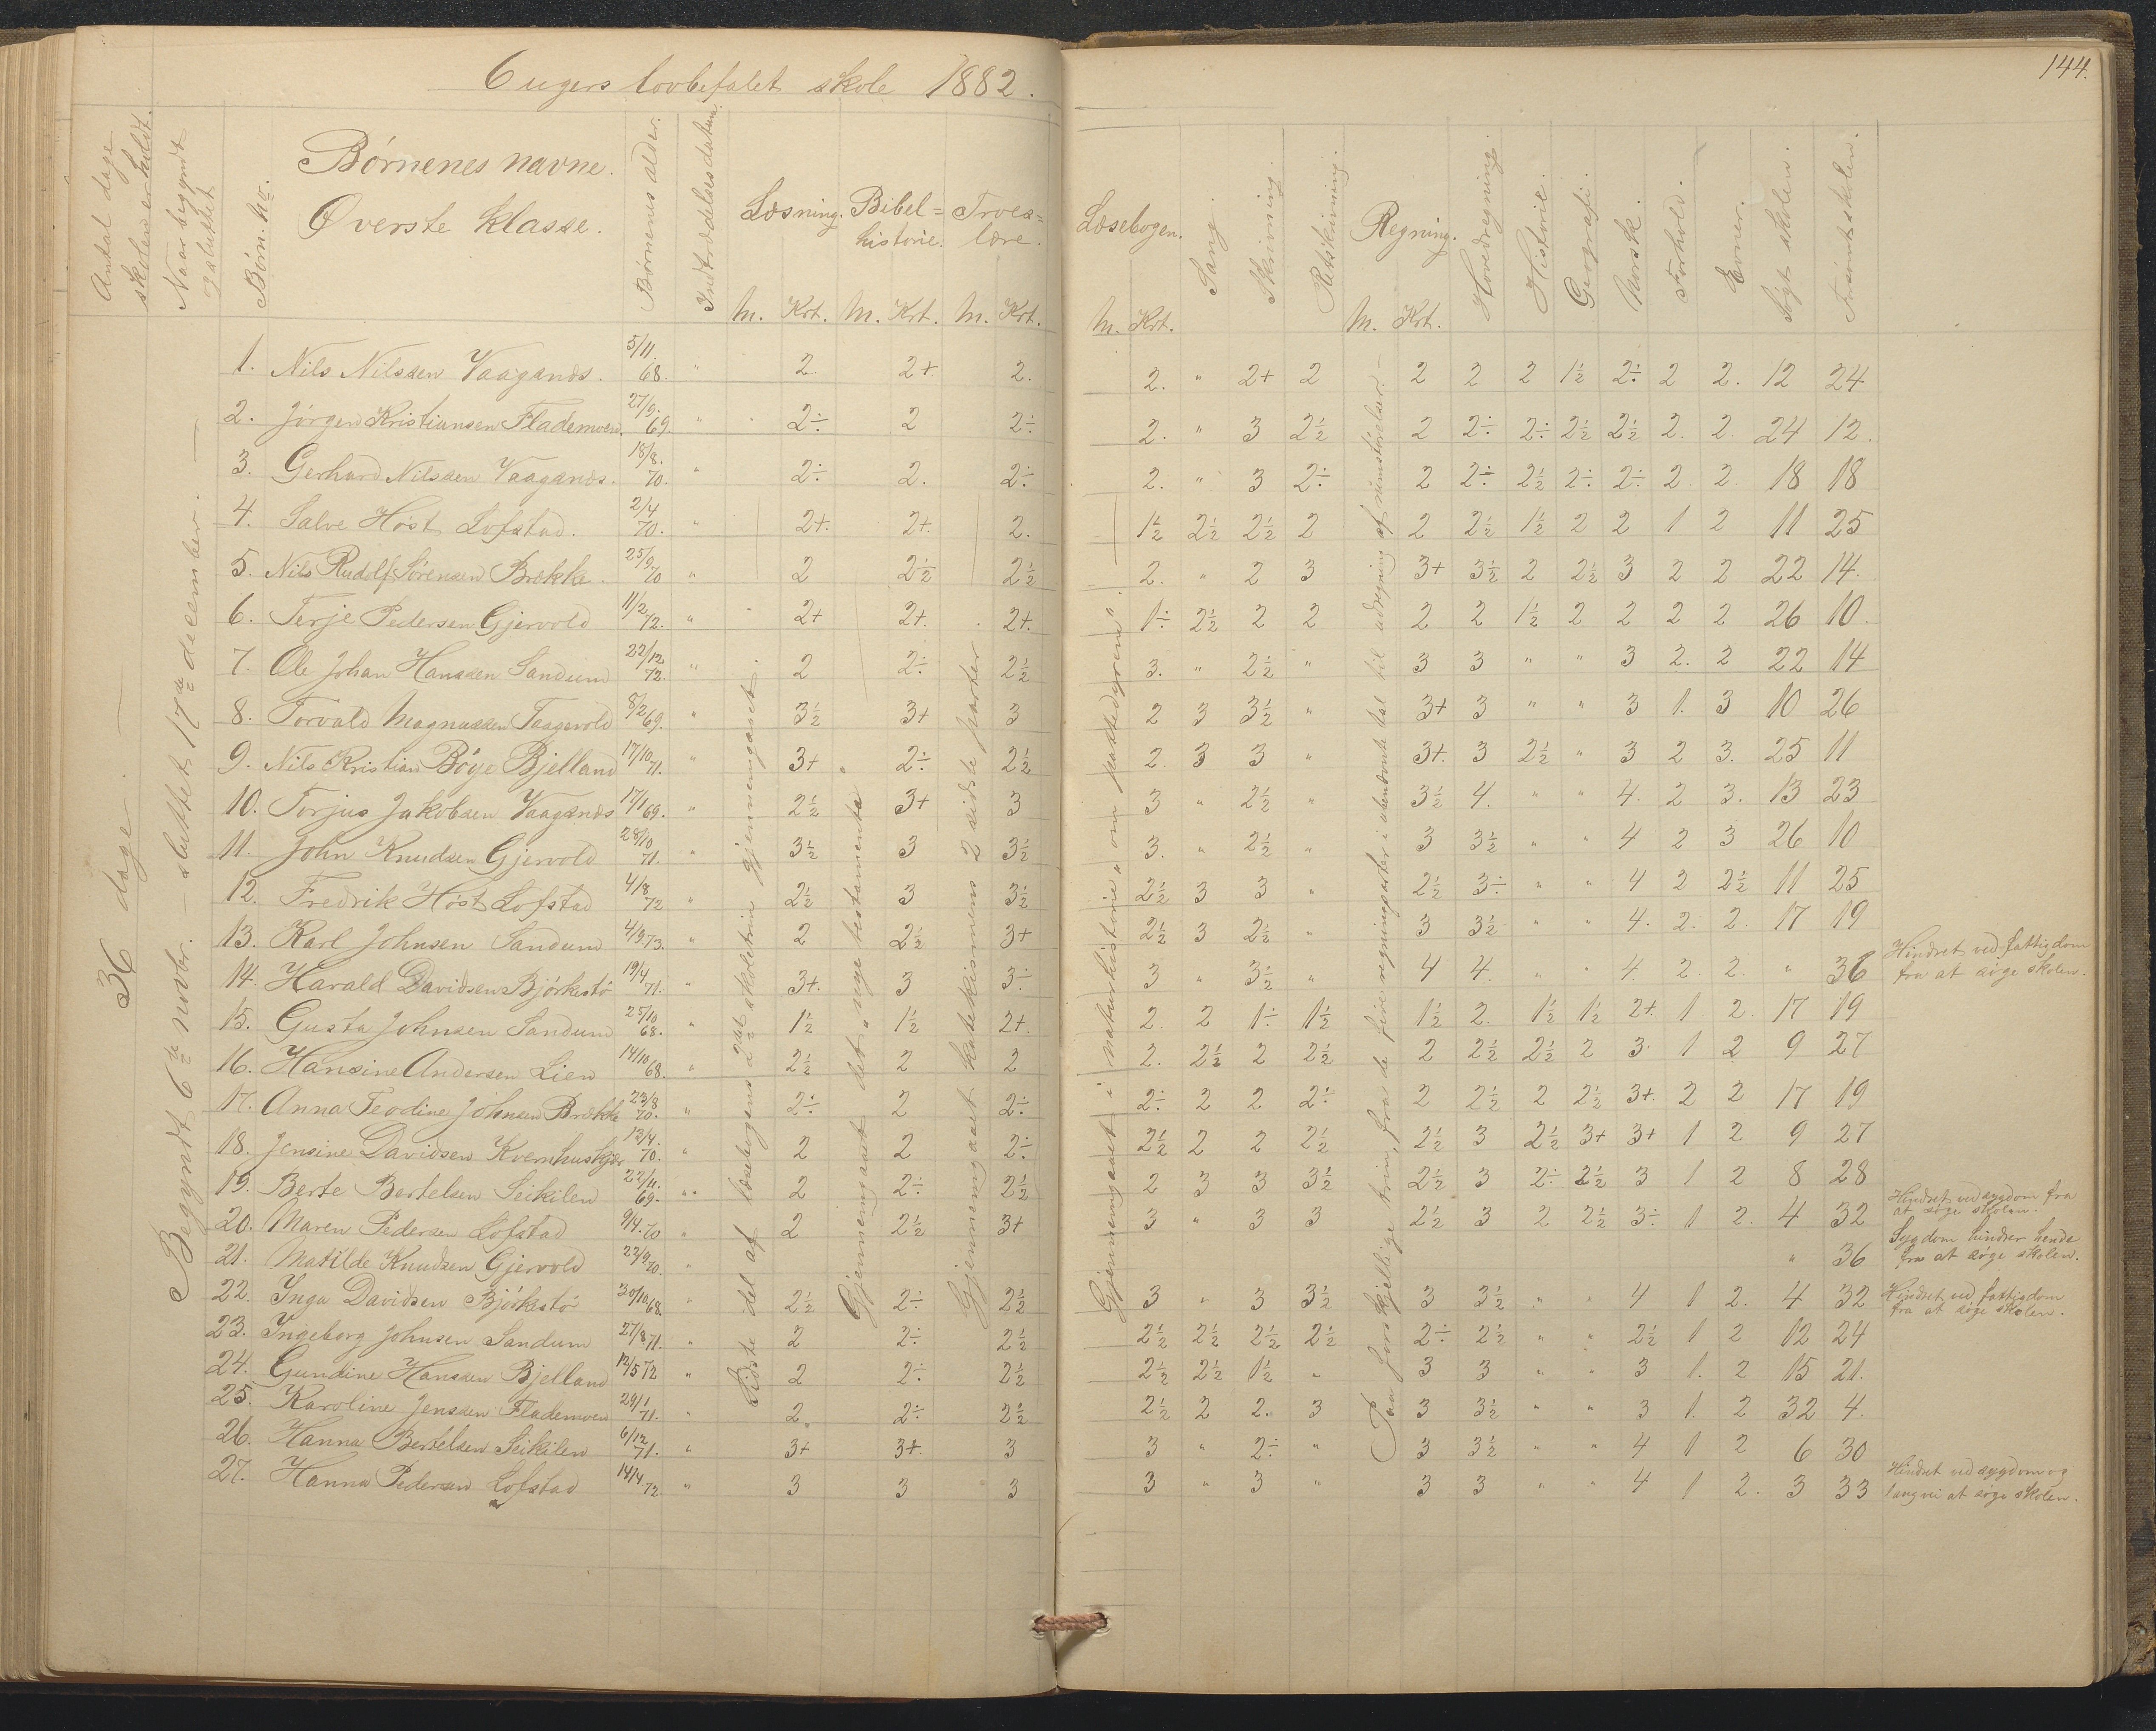 6 ugers lovbefalet skole 1882.
144.
Antal dage skolen er holdt.
Naar begyndt og sluttet
Børn. no.
Børnenes navne.
Øverste klasse.
Børnenes alder.
Indtrædelsesdatum.
Læsning. M. Krt.
Bibel=historie. M. Krt.
Troes=lære. M. Krt.
Læsebogen. M. Krt.
Sang.
Skrivning.
Retskrivning.
Regning. M. Krt.
Hovedregning.
Historie.
Geografi.
Norsk.
Forhold.
Evner.
Søgt skolen.
Forsømt skolen.
36 dage.
Begyndt 6te novbr. — sluttet 17de december. —
Sidste del af læsebogens 2det skoletrin gjennemgaaet.
Gjennemgaaet det „nye testamente“
Gjennemgaaet katekismens 2 sidste parter
Gjennemgaaet i naturhistorie „om pattedyrene“.
Paa forskjellige trin, fra de fire regningsarter i ubenævnte tal til udregning af rumstørrelser. —
1. Nils Nilssen Vaagsnes. 5/11. 68. " 2. 2+ 2. 2. " 2+ 2 2 2 2 1½ 2÷ 2 2. 12 24
2. Jørgen Kristiansen Flademoen. 27/9. 69. " 2÷ 2 2÷ 2. " 3 2½ 2 2÷ 2÷ 2½ 2½ 2. 2. 24 12.
3. Gerhard Nilssen Vaagsnes. 18/8. 70. " 2÷ 2. 2÷ 2. " 3 2÷ 2 2÷ 2½ 2÷ 2÷ 2. 2. 18 18
4. Salve Høst Lofstad. 2/4 70. " 2+. 2+. 2. 1½ 2½ 2½ 2 2 2½ 1½ 2 2 1 2 11 25
5. Nils Rudolf Sørensen Brekke. 25/9 70 " 2 2½ 2½ 2. " 2 3 3+ 3½ 2 2½ 3 2 2 22 14.
6. Terje Pedersen Gjervold 11/2 72. " 2+ 2+. 2+. 1÷ 2½ 2 2 2 2 1½ 2 2 2 2 26 10.
7. Ole Johan Hanssen Sandum 22/12 72. " 2 2÷ 2½ 3. " 2½ " 3 3 " " 3 2. 2 22 14
8. Torvald Magnussen Taagvold 8/2 69. " 3½ 3+ 3 2 3 3½ " 3+ 3 " " 3 1. 3 10 26
9. Nils Kristian Bøye Bjelland 17/10 71. " 3+ 2÷ 2½ 2. 3 3 " 3+. 3 2½ " 3 2 3. 25 11
10. Torjus Jakobsen Vaagsnes 17/1 69. " 2½ 3+ 3 3 " 2½ " 3½ 4. " " 4. 2 3. 13 23
11. John Knudsen Gjervold 28/10 71. " 3½ 3 3½ 3. " 2½ " 3 3½ " " 4 2 3 26 10
12. Fredrik Høst Lofstad 4/8 72 " 2½ 3 3½ 2½ 3 3 " 2½ 3÷ " " 4 2 2½ 11 25
13. Karl Johnsen Sandum 4/9 73. " 2 2½ 3+ 2½ 3 2½ " 3 3½ " " 4. 2. 2. 17 19
14. Harald Davidsen Bjørkestø 19/4 71. " 3+. 3 3÷ 3 " 3½ " 4 4. " " 4. 2. 2. " 36 Hindret ved fattigdom
fra at søge skolen.
15. Gusta Johnsen Sandum 25/10 68. " 1½ 1½ 2+. 2. 2 1÷ 1½ 1½ 2. 1½ 1½ 2+. 1 2. 17 19
16. Hansine Andersen Lien 14/10 68. " 2½ 2 2 2. 2½ 2 2½ 2 2½ 2½ 2 3. 1 2 9 27
17. Anna Teodine Johnsen Brekke 23/8 70. " 2÷ 2 2÷ 2÷ 2 2 2÷ 2 2½ 2 2½ 3+. 2 2 17 19
18. Jensine Davidsen Kvernhuskjær 13/4. 70. " 2 2 2÷ 2½ 2 2 2½ 2½ 3 2½ 3+ 3+ 1 2 9 27
19. Berte Bertelsen Seikilen 22/11. 69. " 2 2÷ 2½ 2 3 3 3½ 2½ 3 2÷ 2½ 3 1 2 8 28
20. Maren Pedersen Lofstad 9/4. 70 " 2 2½ 3+ 3 " 3 3 2½ 3 2 2½ 3÷ 1 2. 4 32 Hindret ved sygdom fra
at søge skolen.
21. Matilde Knudsen Gjervold 22/9 70. " " 36 Sygdom hindrer hende
fra at søge skolen.
22. Inga Davidsen Bjørkestø 30/10 68. " 2½ 2÷ 2½ 3 " 3 3½ 3 3½ " " 4 1 2. 4 32 Hindret ved fattigdom
fra at søge skolen.
23. Ingeborg Johnsen Sandum 27/8 71. " 2 2÷ 2½ 2½ 2½ 2½ 2½ 2÷ 2½ " " 2½ 1 2 12 24
24. Gundine Hanssen Bjelland 12/5 72 " 2 2÷ 2½ 2½ 2½ 1½ " 3 3 " " 3 1. 2 15 21.
25. Karoline Jenssen Flademoen 29/1 71. " 2. 2÷ 2½ 2½ 2 2. 3 3 3½ " " 3 1. 2 32 4.
26. Hanna Bertelsen Seikilen 6/12 71. " 3+ 3+. 3 3 " 2÷ " 3 3½ " " 4 1 2 6 30
27. Hanna Pedersen Lofstad 14/4 72 " 3 3 3 3 " 3 " 3 3 " " 4 1 2. 3 33 Hindret ved sygdom og
lang vei at søge skolen.